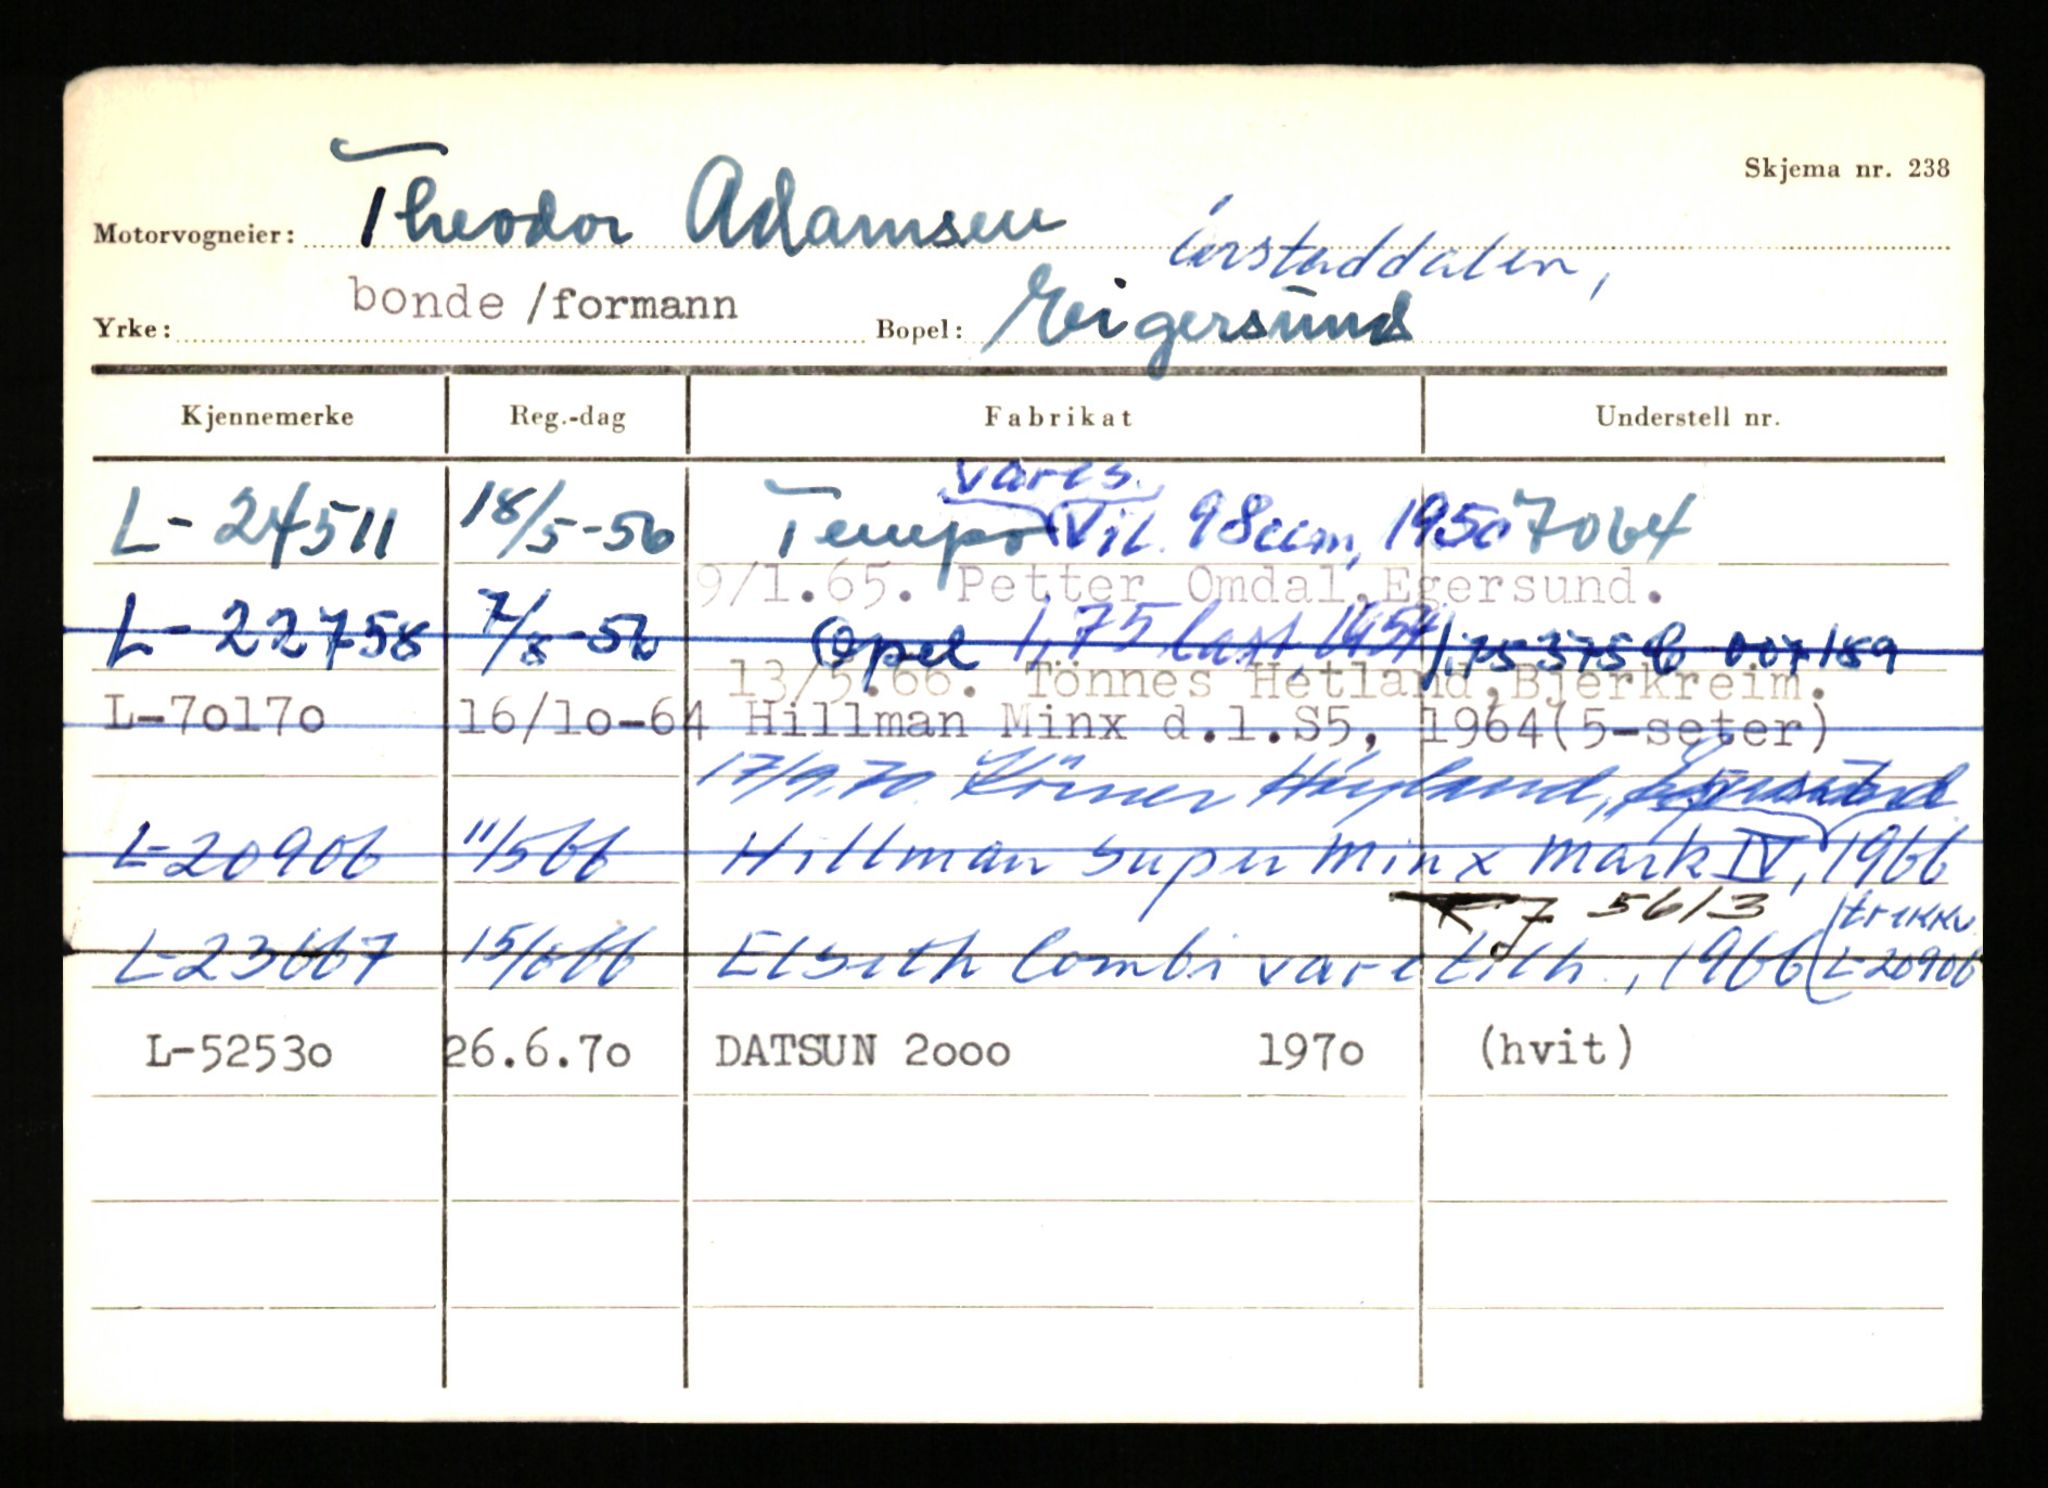 Skjema nr. 238
Motorvogneier: Theodor Adamsen
Årstaddalen,
Yrke: bonde /formann Bopel: Eigersund
Kjennemerke Reg.-dag Fabrikat Understell nr.
vares.
L-24511 18/5-56 Tempo Vil. 98ccm, 1950 7064
9/1.65. Petter Omdal, Egersund.
L-22758 7/8-56 Opel 1,75 last, 1954 1,75 375 B 007189
13/5.66. Tönnes Hetland, Bjerkreim.
L-70170 16/10-64 Hillman Minx d.l.S5, 1964(5-seter)
17/9.70. Höyland, Egersund
L-20906 11/566 Hillman Super Minx Mark IV, 1966
5613
trekkv.
L-23667 15/666 Elseth Combi vare tilh., 1966 L-20906
L-52530 26.6.70 DATSUN 2000 1970 (hvit)